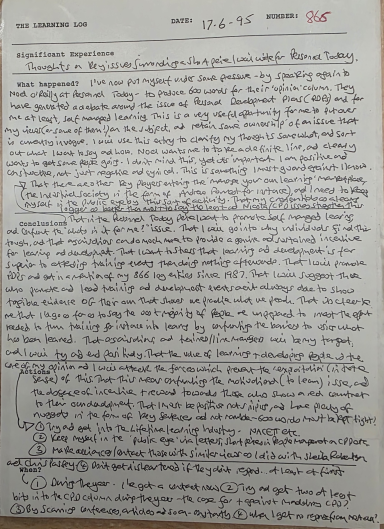 THE LEARNING LOG
DATE: 17-6-95
NUMBER: 865
Significant Experience
Thoughts on Key issues surrounding a short piece I will write for Personnel Today.
What happened? I've now put myself under some pressure - by speaking again to
Noel O'Reilly at Personnel Today - to produce 600 words for their 'opinion' column. They
have generated a debate around the issue of Personal Development Plans (PDPs) and for
me at least, self managed learning. This is a very useful opportunity for me to put over
my views on some of them on the subject, and retain some ownership of an issue that
is currently in vogue. I will use this entry to clarify my thoughts somewhat, and sort
out what I want to say and how. Noel wants me to take a definite line, and clearly
wants to get some people going. I don't mind this, yet it's important I am positive and
constructive, not just negative and cynical. This is something I must guard against I know.
That there are other Key players entering the 'manage your own learning' marketplace,
(the Industrial Society in the form of for instance), and I need to keep
myself in the public eye by this sort of activity.
Conclusions That if the Personnel Today people want to promote self managed learning
and content the 'what's in it for me?' issue. That I will go into why individuals find this
tough, and that organisations can do much more to provide a genuine and sustained incentive
for learning and development. That I want to stress that learning and development is far
superior to attending training events and then doing nothing afterwards. That I will promote
PDPs and get in a mention of my 866 log entries since 1987. That I will suggest those
who promote and lead training and development events aren't always able to show
tangible evidence of their own that shows we practice what we preach. That it is clear to
me that I can go so far as to say the vast majority of people are unprepared to invest the effort
needed to turn training for instance into learning by confronting the barriers to using what
has been learned. That organisations and trainers/line managers will be my target,
and I will try and end positively. That the value of learning + developing people is the
core of my opinion and I will attack the forces which prevent the
Actions
sense) of this. That this means confronting the motivational (to learn) issue, and
the absence of incentive + reward towards those who show a real commitment
to their own development. That I must be positive not sniping, and have plenty of
nuggets in the form of key sentences and not ramble. 600 words must be kept tight!
① Try and get into the Lifetime Learning Industry - NACETT etc
② Keep myself in the 'public eye' via letters, short pieces in People Management on CPD etc
③ Make alliances/contact those with similar ideas as I did with Sheila Robertson
and Chris Passey ④ Don't get disheartened if they don't respond. At least at first
When?
① During the year - I've got a contact now ② Try and get two at least
bits into the CPD column during the year - the case for + against mandatory CPD?
③ By scanning conferences, articles and so on constantly ④ When I get no response from my letters!